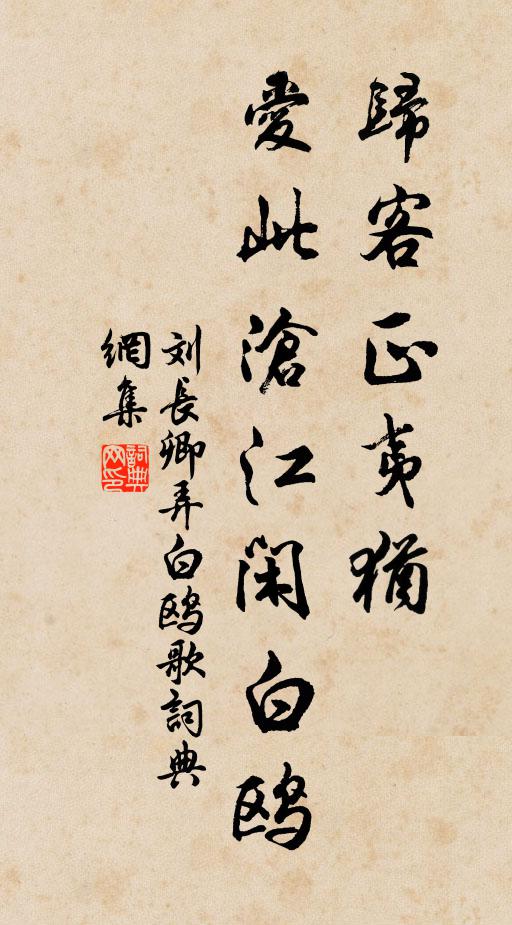 歸客正夷猶
愛此滄江閑白鴎
刘長卿弄白鴎歌詞典
網集
詞典
网印